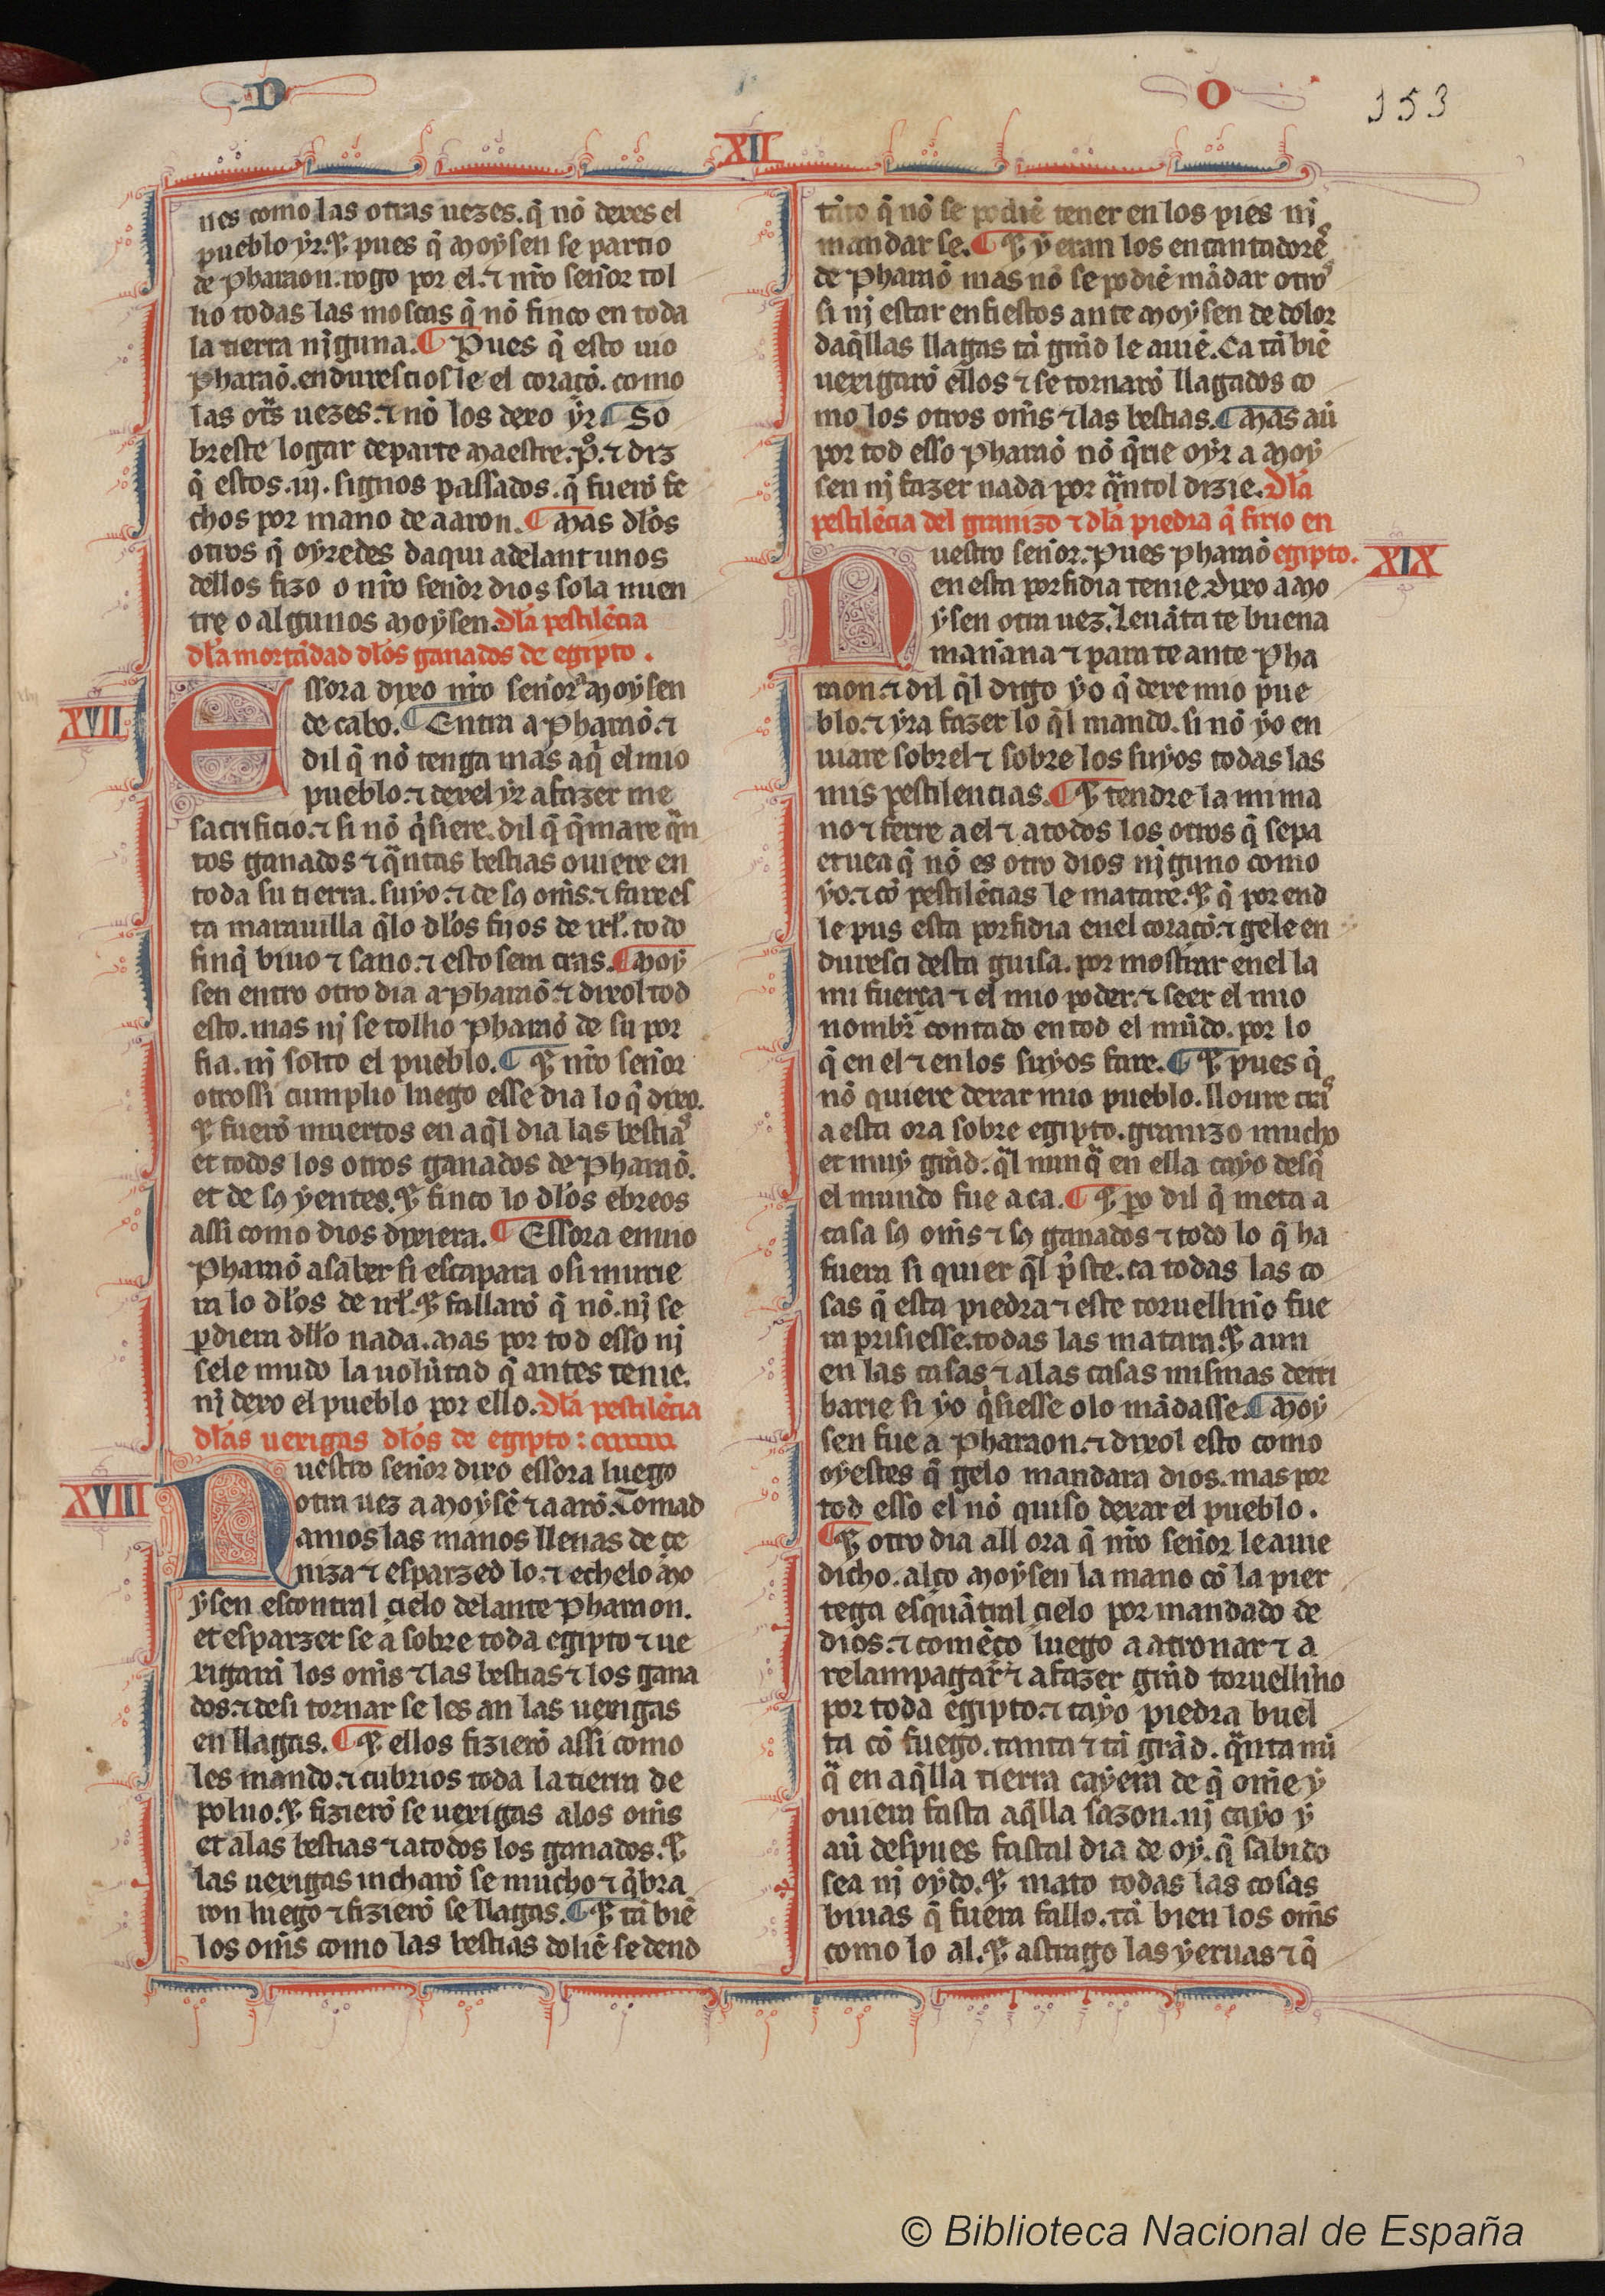 D O 153
XII
nes como las otras uezes. q̃ nõ dexes el
pueblo yr. Et pues q̃ Moysen se partio
de pharaon. rogo por el. ⁊ nr̃o sennor tol
lio todas las moscas q̃ nõ finco en toda
la tierra nĩguna. ¶ Pues q̃ esto uio
pharaõ. endurescios le el coraçõ. como
las otͣs uezes. ⁊ nõ los dexo yr ¶ So
breste logar departe maestre. p̃o. ⁊ diz
q̃ estos .iij. signos passados. q̃ fuerõ fe
chos por mano de aaron. ¶ Mas dlos
otros q̃ oyredes daqui adelant unos
dellos fizo o nr̃o sennor dios sola mien
tre o algunos Moysen. Dla pestilẽcia
dla mortãdad dlos ganados de egipto.
XVII
Essora dixo nr̃o sennor a Moysen
de cabo. ¶ Entra a pharaõ. ⁊
dil q̃ nõ tenga mas aq̃ el mio
pueblo. ⁊ dexel yr a fazer me
sacrificio. ⁊ si nõ q̃siere. dil q̃ q̃mare qͣn
tos ganados ⁊ qͣntas bestias ouiere en
toda su tierra. suyo. ⁊ de sꝯ om̃s. ⁊ fare es
ta marauilla q̃lo dlos fijos de irl̃. todo
finq̃ biuo ⁊ sano. ⁊ esto sera cras. ¶ Moy
sen entro otro dia a pharaõ ⁊ dixol tod
esto. mas nĩ se tolho pharaõ de su por
fia. nĩ solto el pueblo. ¶ Et nr̃o sennor
otrossi cumplio luego esse dia lo q̃ dixo.
Et fuerõ muertos en aq̃l dia las bestias
et todos los otros ganados de pharaõ.
et de sꝯ yentes. Et finco lo dlos ebreos
assi como dios dixiera. ¶ Essora enuio
pharaõ a saber si escapara o si murie
ra lo dlos de irl̃. Et fallarõ q̃ nõ. nĩ se
ꝑdiera dllo nada. Mas por tod esso nĩ
sele mudo la uolũtad q̃ antes tenie.
nĩ dexo el pueblo por ello. Dla pestilẽcia
dlas uexigas dlos de egipto:
XVIII
Nuestro sennor dixo essora luego
otra uez a Moysẽ ⁊ a arõ. Tomad
amos las manos llenas de çe
niza ⁊ esparzed lo. ⁊ echelo Mo
ysen escontral cielo delante pharaon.
et esparzer se a sobre toda egipto ⁊ ue
xigarã los om̃s ⁊ las bestias ⁊ los gana
dos. ⁊ desi tornar se les an las uexigas
en llagas. ¶ Et ellos fizierõ assi como
les mando. ⁊ cubrios toda la tierra de
poluo. Et fizierõ se uexigas alos om̃s
et alas bestias ⁊ a todos los ganados. Et
las uexigas incharõ se mucho ⁊ q̃bra
ron luego ⁊ fizierõ se llagas. ¶ Et tã biẽ
los om̃s como las bestias doliẽ se dend
tãto q̃ nõ se podiẽ tener en los pies nĩ
mandar se. ¶ Et y eran los encantadores
de pharaõ mas nõ se podiẽ mãdar otros
si nĩ estar enfiestos ante Moysen de dolor
daq̃llas llagas tã grãd le auiẽ. Ca tã biẽ
uexigarõ ellos ⁊ se tornarõ llagados co
mo los otros om̃s ⁊ las bestias. ¶ Mas aũ
por tod esso pharaõ nõ q̃rie oyr a Moy
sen nĩ fazer nada por qͣntol dizie. Dla
pestilẽcia del granizo ⁊ dla piedra q̃ firio en
egipto.
XIX
Nuestro sennor. Pues pharaõ
en esta porfidia tenie. Dixo a Mo
ysen otra uez. Leuãta te buena
mannana ⁊ para te ante pha
raon. ⁊ dil q̃l digo yo q̃ dexe mio pue
blo. ⁊ yra fazer lo q̃l mando. si nõ yo en
uiare sobrel ⁊ sobre los suyos todas las
mis pestilencias. ¶ Et tendre la mi ma
no ⁊ ferre a el ⁊ a todos los otros q̃ sepa
et uea q̃ nõ es otro dios nĩguno como
yo. ⁊ cõ pestilẽcias le matare. Et q̃ por end
le pus esta porfidia enel coraçõ. ⁊ gele en
duresci desta guisa. por mostrar enel la
mi fuerça ⁊ el mio poder. ⁊ seer el mio
nombr̃ contado en tod el mũdo. por lo
q̃ en el ⁊ en los suyos fare. ¶ Et pues q̃
nõ quiere dexar mio pueblo. lloure cras
a esta ora sobre egipto. granizo mucho
et muy grãd. qͣl nunqͣ en ella cayo desq̃
el mundo fue aca. ¶ Et ꝑo dil q̃ meta a
casa sꝯ om̃s ⁊ sꝯ ganados ⁊ todo lo q̃ ha
fuera si quier q̃l p̃ste. ca todas las co
sas q̃ esta piedra ⁊ este toruellino fue
ra prisiesse. todas las matara. Et aun
en las casas ⁊ alas casas mismas derri
barie si yo q̃siesse o lo mãdasse. ¶ Moy
sen fue a pharaon. ⁊ dixol esto como
oyestes q̃ gelo mandara dios. mas por
tod esso el nõ quiso dexar el pueblo.
¶ Et otro dia all ora q̃ nr̃o sennor le auie
dicho. alço Moysen la mano cõ la pier
tega esquãtral cielo por mandado de
dios. ⁊ comẽço luego a atronar ⁊ a
relampagar. ⁊ a fazer grãd toruellino
por toda egipto. ⁊ cayo piedra buel
ta cõ fuego. tanta ⁊ tã grãd. qͣnta nũ
qͣ en aq̃lla tierra cayera de q̃ om̃e y
ouiera fasta aq̃lla sazon. nĩ cayo y
aũ despues fastal dia de oy. q̃ sabido
sea nĩ oydo. Et mato todas las cosas
biuas q̃ fuera fallo. tã bien los om̃s
como lo al. Et astrago las yeruas ⁊ q̃
© Biblioteca Nacional de España